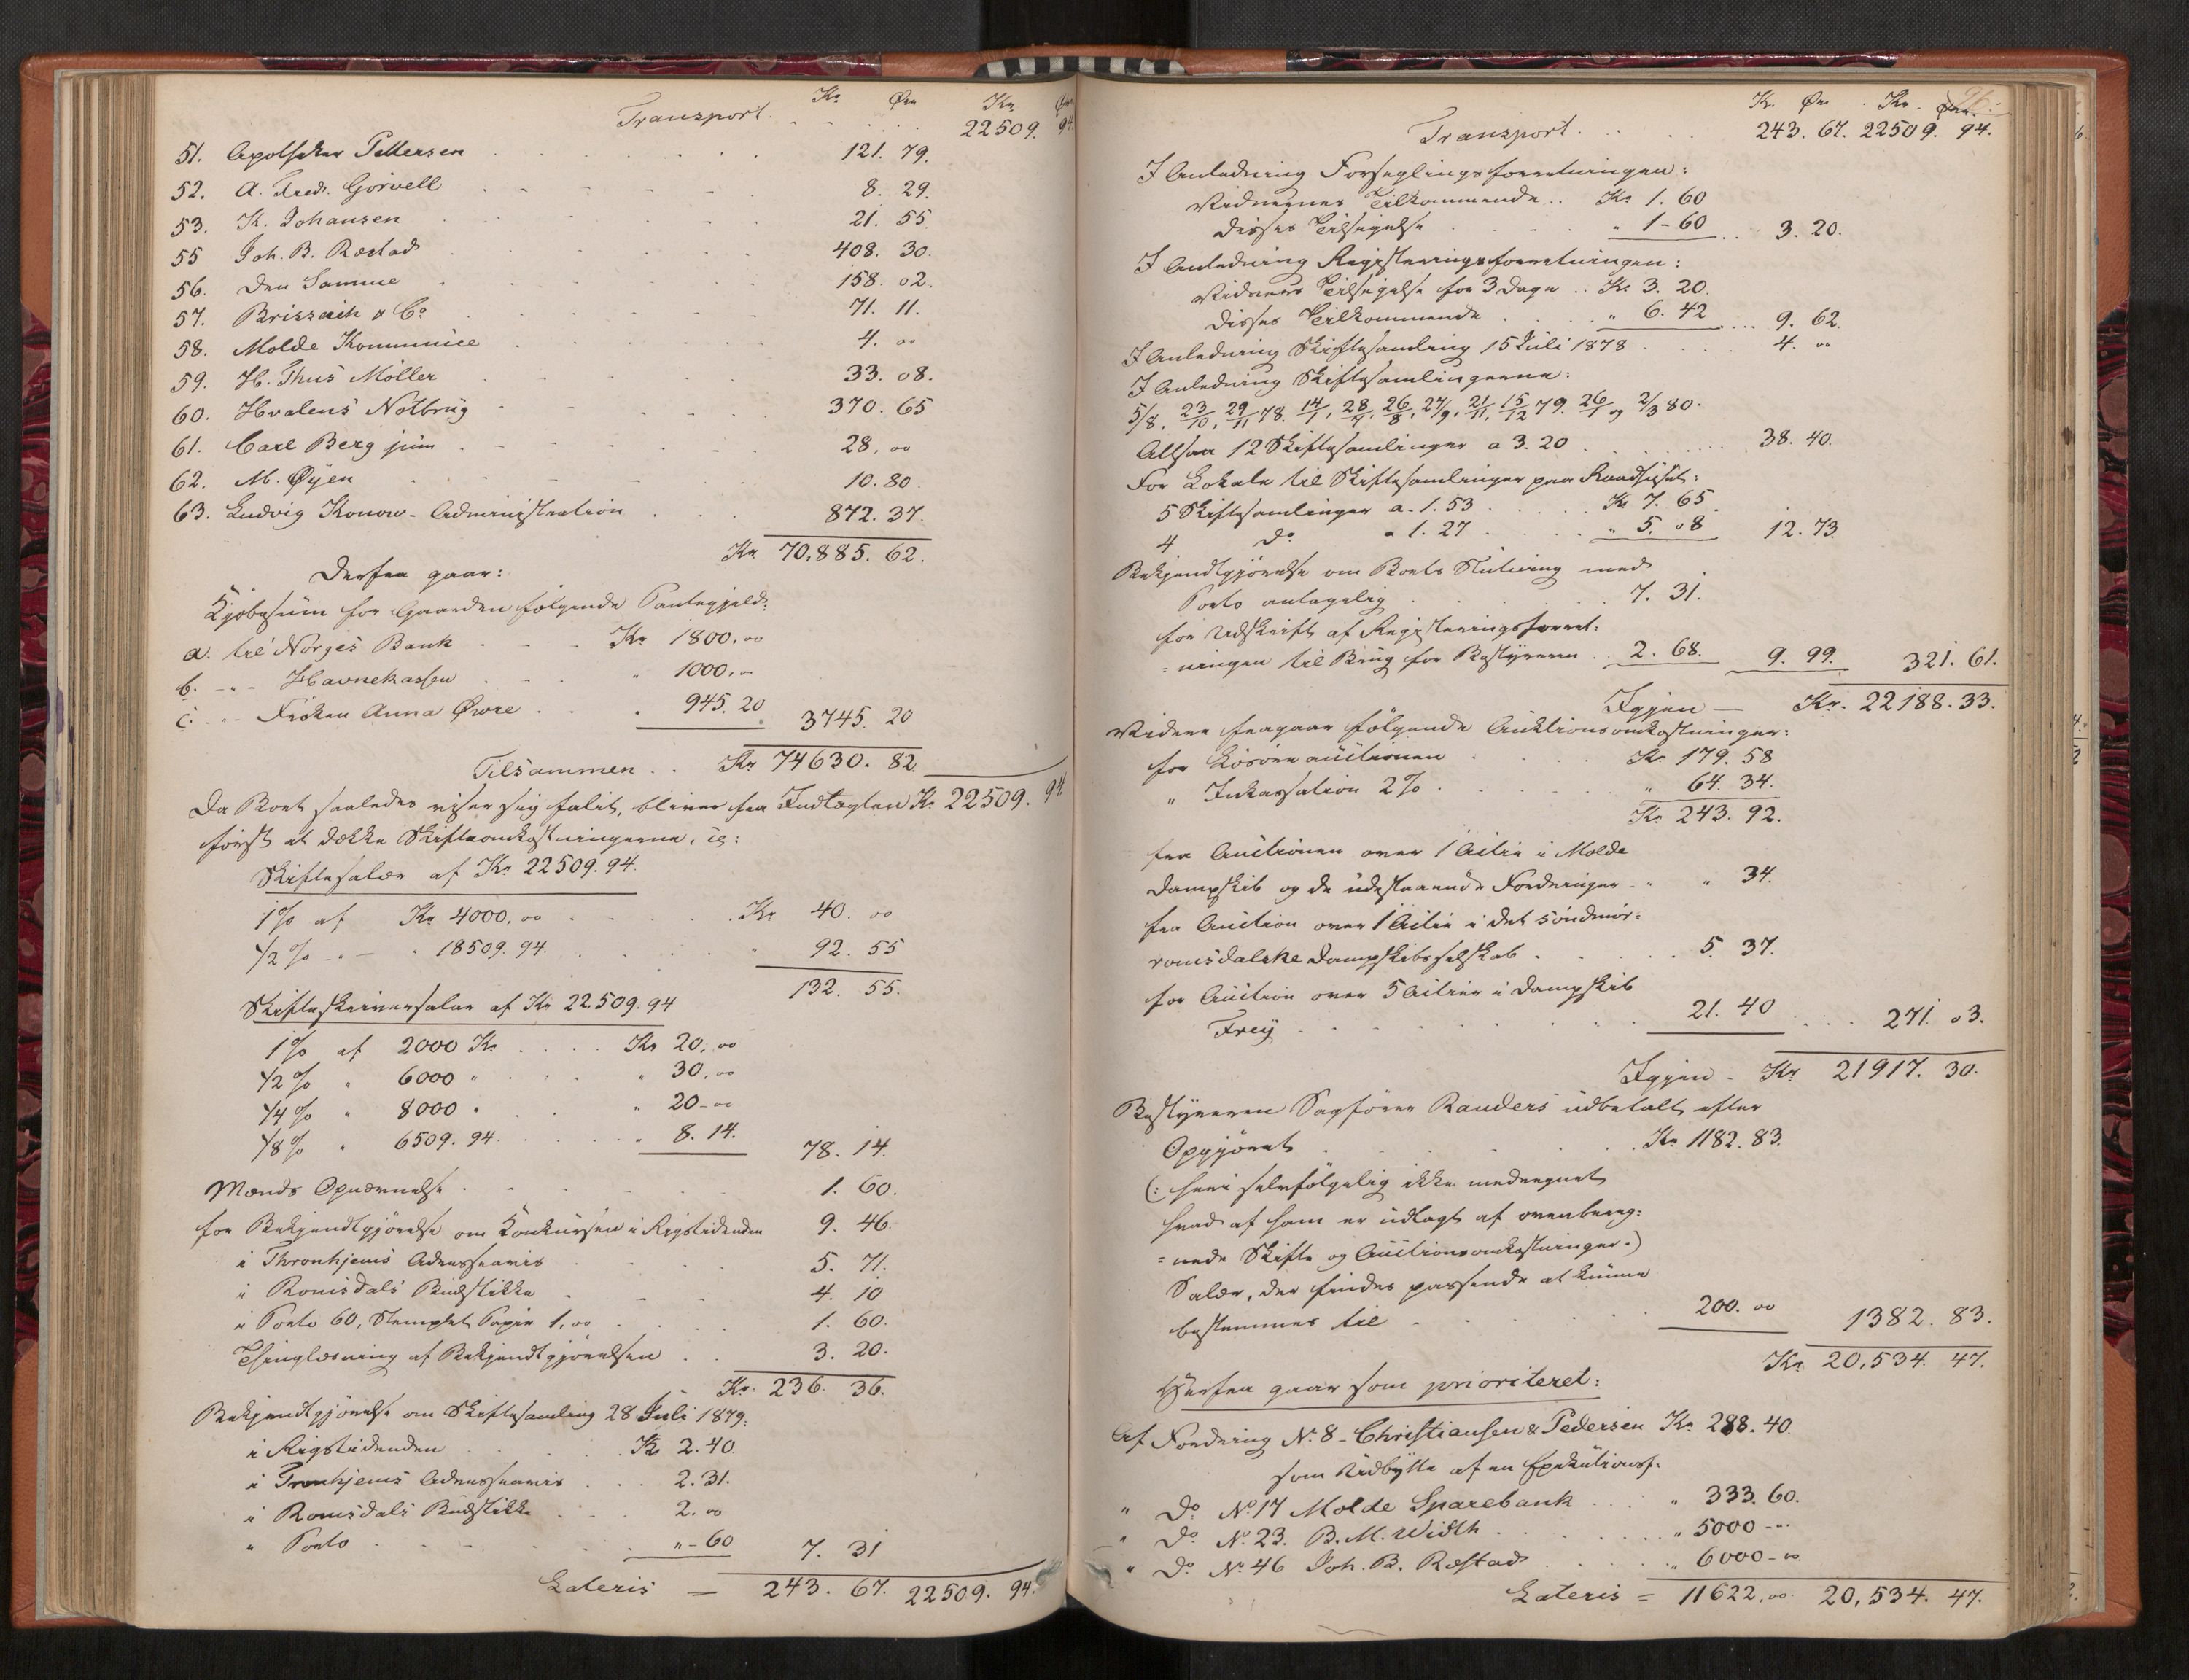 Kr Øre Kr. Øre
Transport. 22509. 94.
51. Apotheker Pettersen 121. 79.
52. A. Fred. Görvell 8. 29.
53. K. Johansen 21. 55.
55 Joh. B. Ræstad 408. 30.
56. Den Samme 158. 02.
57. Brissach & Co 71. 11.
58. Molde Kommune 4. 00
59. H. Thus Möller 33. 08.
60. Hvalens Notbrug 370. 65
61. Carl Berg jun 28, 00
62. M. Øyen 10. 80.
63. Ludvig Konow - Administration 872. 37.
Kr 70,885. 62.
Derfra gaar:
Kjøbesum for Gaarden følgende Pantegjeld:
a. til Norges Bank Kr 1800. 00
b. - " - Havnekassen " 1000. 00
c. - " - Frøken Anna Øwre " 945. 20 3745. 20
Tilsammen . . Kr 74630. 82.
Da Boet saaledes viser sig falit, bliver fra Indtægten Kr. 22509. 94.
først at dække Skifteomkostningerne, :
Skiftesalær af Kr. 22509. 94.
1% af Kr 4000, 00 Kr 40. 00
1/2% - " - " 18509. 94. " 92. 55
132. 55.
Skifteskriversalær af Kr 22.509. 94
1% af 2000 Kr. Kr 20, 00
1/2% " 6000 " " 30, 00
1/4% " 8000 " " 20 - 00
1/8% " 6509. 94. " 8. 14. 78. 14.
Mænds Opnævnelse 1. 60.
for Bekjendtgjørelse om Konkursen i Rigstidenden 9. 46.
i Thronhjems Adresseavis 5. 71.
i Romsdals Budstikke 4. 10
i Porto 60, Stemplet Papir 1, 00 1. 60.
Thinglæsning af Bekjendtgjørelsen 3. 20.
Kr. 236. 36.
Bekjendtgjørelse om Skiftesamling 28 Juli 1879:
i Rigstidenden Kr 2. 40.
i Tronhjems Adresseavis 2. 31.
i Romsdals Budstikke 2. 00
" Porto " - 60 7. 31
Lateris = 243. 67. 22509. 94.
Kr. Øre Kr. Øre.
Transport. 243. 67. 22509. 94.
I Anledning Forseglingsforretningen:
Vidnernes Tilkommende . . Kr. 1. 60
disses Tilsigelse " 1 - 60 3. 20.
I Anledning Registreringsforretningen:
Vidners Tilsigelse for 3 Dage . . Kr. 3. 20.
disses Tilkommende " 6. 42 9. 62.
I Anledning Skiftesamling 15 Juli 1878 4. 00
I Anledning Skiftesamlingerne:
5/8, 23/10, 29/11 78. 14/1, 28/7, 26/8, 27/9, 21/11, 15/12 79. 26/1 og 2/3 80.
Altsaa 12 Skiftesamlinger a 3. 20 38. 40.
For Lokale til Skiftesamlinger paa Raadhuset:
5 Skiftesamlinger a. 1. 53 Kr 7. 65
4 Do a 1. 27 " 5. 08 12. 73.
Bekjendtgjørelse om Boets Slutning med
Porto antagelig 7. 31.
for Udskrift af Registreringsforret=
=ningen til Brug for Bestyreren . . 2. 68. 9. 99. 321. 61.
Igjen — Kr. 22188. 33.
Videre fragaar følgende Auktionsomkostninger:
for Løsøreauctionen Kr. 179. 58
" Inkassation 2% " 64. 34.
Kr. 243. 92.
fra Auctionen over 1 Actie i Molde
Dampskib og de udestaaende Fordringer - " " 34.
fra Auction over 1 Actie i det söndmör=
romsdalske Dampskibsselskab 5. 37.
for Auction over 5 Actier i Dampskib
Frey 21. 40 271. 03.
Igjen - Kr 21917. 30.
Bestyreren Sagfører Randers udbetalt efter
Opgjøret Kr 1182. 83.
(: heri selvfølgelig ikke medregnet
hvad af ham er udlagt af ovenbereg=
=nede Skifte og Auctionsomkostninger.)
Salær, der findes passende at kunne
bestemmes til 200. 00 1382. 83.
Kr. 20,534. 47.
Herfra gaar som prioriteret:
Af Fordring No. 8 - Christiansen & Pedersen Kr. 288. 40.
som Udbytte af en Exekutionsf.
" Do No. 17 Molde Sparebank " 333. 60.
" Do No. 23. B. M. Width " 5000 - "
" Do No 46 Joh. B. Ræstad " 6000 - 00
Lateris = 11622, 00. 20,534. 47.